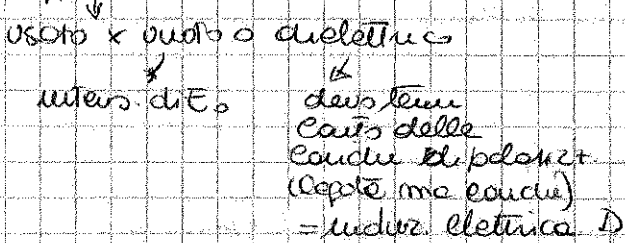 usato x vuoto o dielettrico
intens. di E₀ devo tener
conto delle
cariche di polarizz+
(legate ma cariche)
= induz. elettrica D